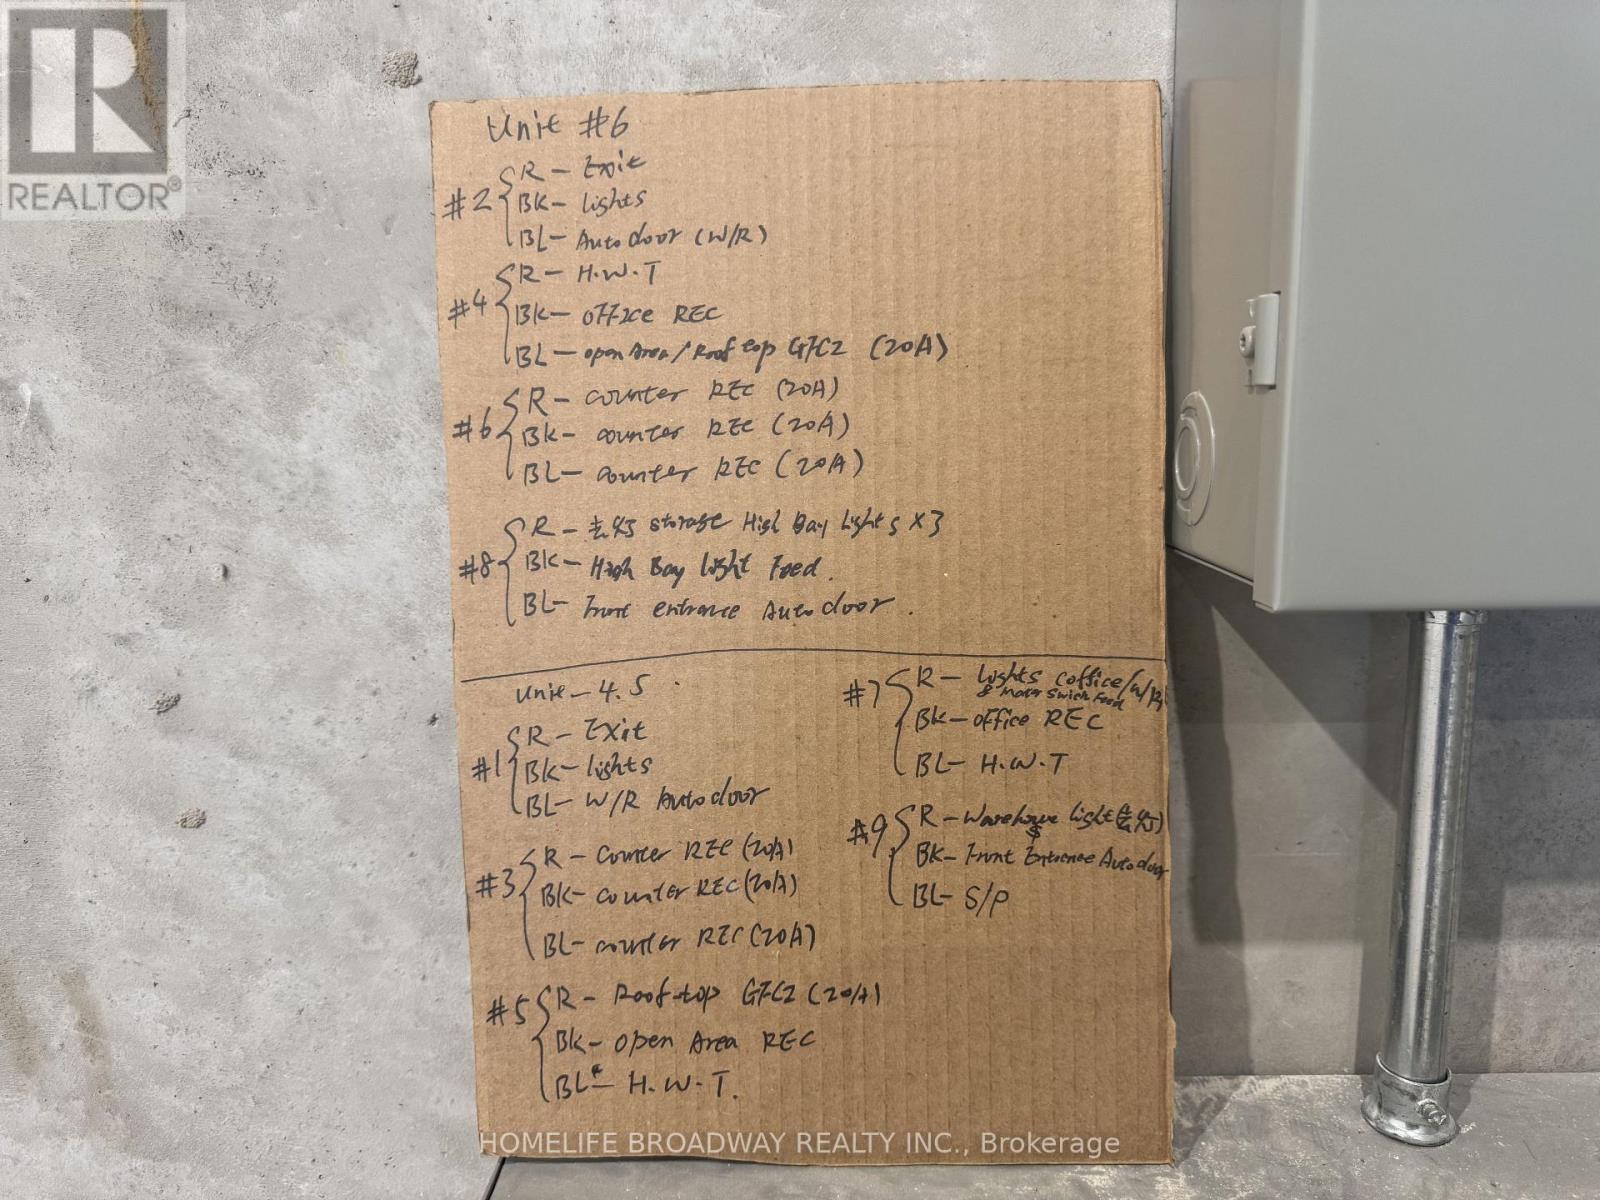 REALTOR®
Unit #6
#2 R - Exit
BK - lights
BL - Auto door (W/R)
#4 R - H.W.T
BK - office REC
BL - open Area / Roof top GFCI (20A)
#6 R - counter REC (20A)
BK - counter REC (20A)
BL - counter REC (20A)
#8 R - storage High Bay Lights x3
BK - High Bay light Feed.
BL - Front entrance Auto door.
Unit - 4.5
#1 R - Exit
BK - lights
BL - W/R Auto door
#3 R - Counter REC (20A)
BK - counter REC (20A)
BL - counter REC (20A)
#5 R - Roof-top GFCI (20A)
BK - open Area REC
BL - H.W.T.
#7 R - Lights (office/W/R)
& Motor Swich Feed
BK - office REC
BL - H.W.T
#9 R - Warehouse light
BK - Front Entrance Auto door
BL - S/P
HOMELIFE BROADWAY REALTY INC., Brokerage